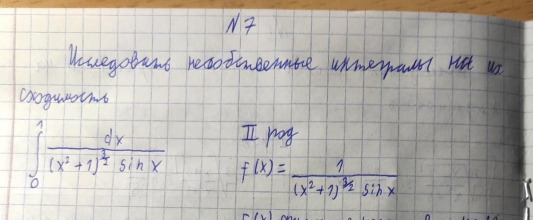 N7
Исследовать несобственные интегралы на их
сходимость
∫₀¹ dx / ((x² + 1)^(3/2) sin x)
II род
f(x) = 1 / ((x² + 1)^(3/2) sin x)